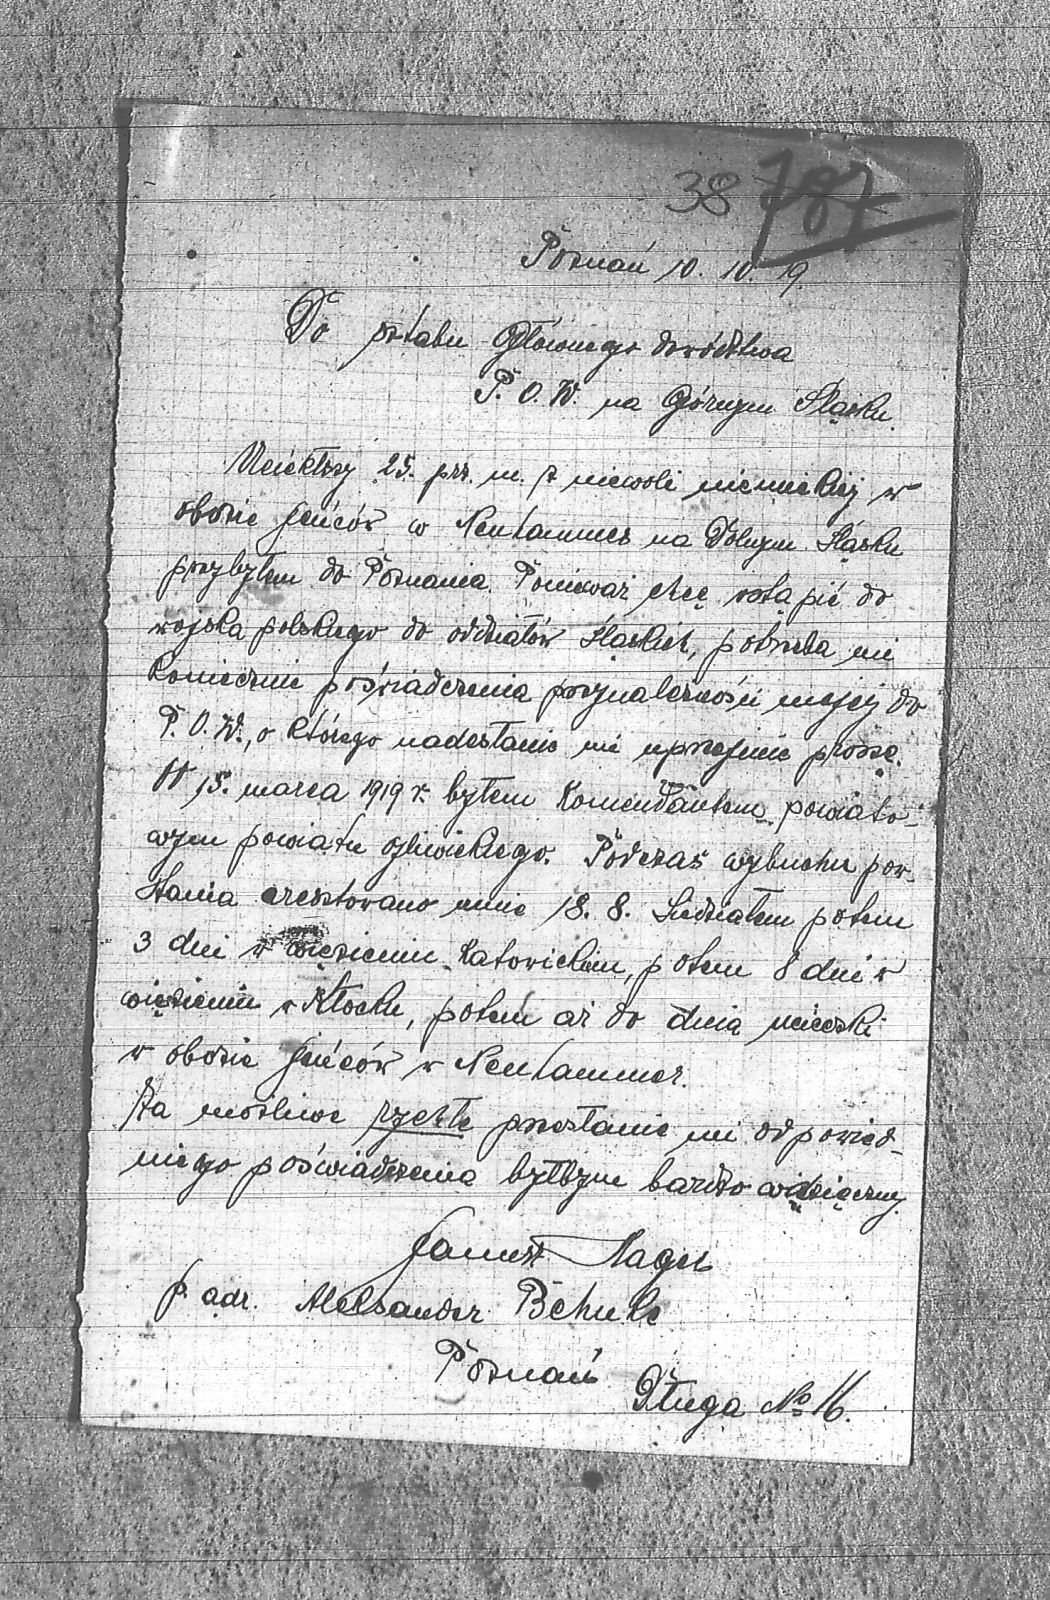 38 787
Poznań 10. 10. 19.
Do sztabu Głównego dowództwa
P. O. W. na Górnym Śląsku.
Uciekłszy 25. prz. m. z niewoli niemieckiej w
obozie jeńców w Neuhammer na Dolnym Śląsku
przybyłem do Poznania. Ponieważ chcę wstąpić do
wojska polskiego do oddziałów Śląskich, potrzeba mi
koniecznie poświadczenia przynależności mojej do
P. O. W., o którego nadesłanie mi uprzejmie proszę.
Od 15. marca 1919 r. byłem Komendantem powiato-
wym powiatu gliwickiego. Podczas wybuchu pow-
stania aresztowano mnie 18. 8. Siedziałem potem
3 dni w więzieniu Katowickim, potem 8 dni w
więzieniu w Kłocku, potem aż do dnia ucieczki
w obozie jeńców w Neuhammer.
Za możliwe rychłe przesłanie mi odpowied-
niego poświadczenia byłbym bardzo wdzięczny.
p. adr. Aleksander
Poznań
Długa No 16.